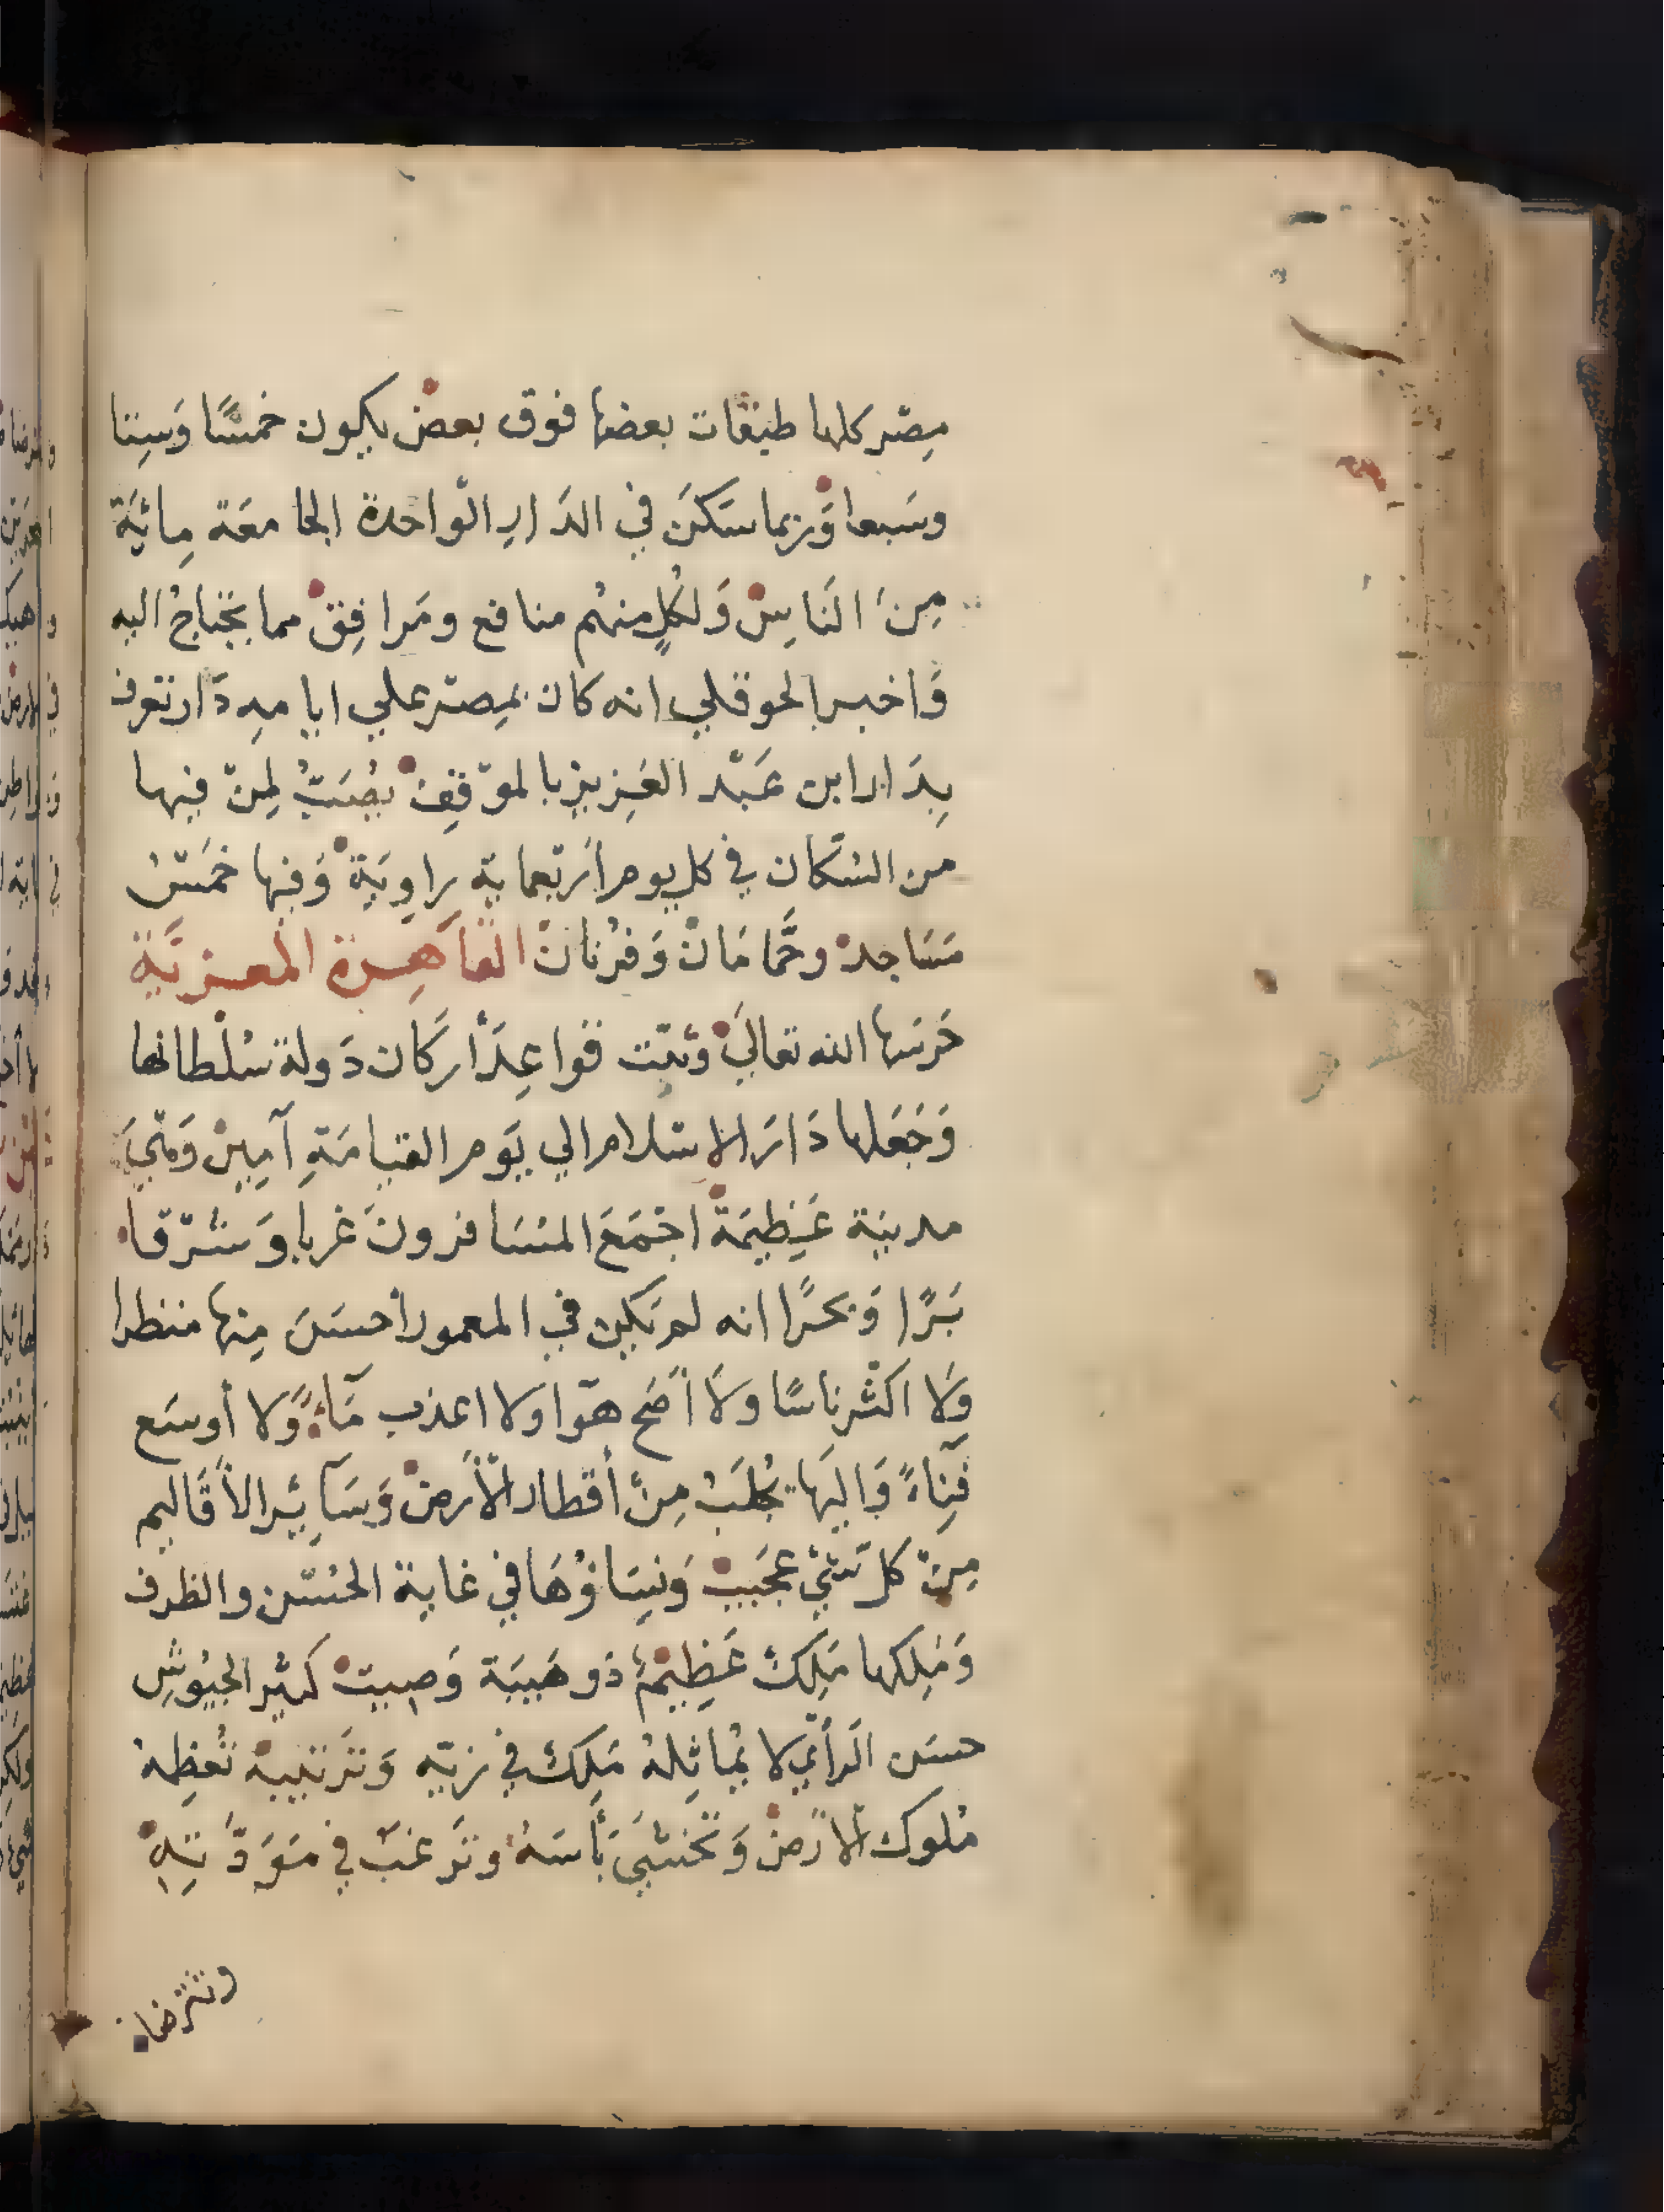 مِصْر كلها طبقات بعضها فوق بعض يكون خمسًا وَسِتا
وسَبعا وَربما سَكَنَ في الدَار الوَاحدة الجامعَة مِائَية
مِنَ النَاسِ وَلكُلٍ منهُم منافع ومَرافِق مما يحْتاجُ اليه
وَاخبر الحوقلي انه كان بمِصْر علي ايامهِ دَار تعرف
بِدَار ابن عَبْد العَزِيز بالموْقِف يصُبُّ لمِنْ فيها
من السُكَان في كل يوم ارْبعماية راوِيَةْ وَفيها خمَسْ
مَسَاجدْ وحَّمامَانْ وَفُرْنانْ القاَهِرة المعزيَّة
حَرَسَها الله تعالَيْ وَثَبّت قوَاعِدَ أركَان دَولة سُلْطَانها
وَجَعَلها دَارَ الاِسْلام الي يَوم القيامَةِ آمِينْ وَهْيَ
مدينة عَظِيمَةْ اجْمَعَ المسَافرونَ غربا وَشَرْقا
بَرًّا وَبحرًا انه لم يَكن في المعمور أحسَنَ مِنها منظرا
وَلا اكثْر ناسًا ولاَ أصَح هَوَا وَلا اعذب مَآءً وَلا أوسَع
فِنَاءً وَاليَها يجُلَبْ مِنْ أقطار الْأرَضْ وَسَآئِر الأقَاليم
مِنْ كل شَيْ عجَيبْ وَنِسَاؤُهَا في غاية الحُسْن والظرف
وَمَلِكها مَلِكٌ عَظِيمْ ذو هَيبَة وَصِيتْ كثيْر الجيُوشِ
حسَن الرَأيْ لا يمُاثِلهُ مَلِكٌ في زِيّهِ وَتَرْتيبهْ تُعظِمهُ
مُلوك الْأرَضْ وَتخْشَيَ بَأسَهُ وَتَرغَبْ في مَوَدَّتِهِ
وتترضاه